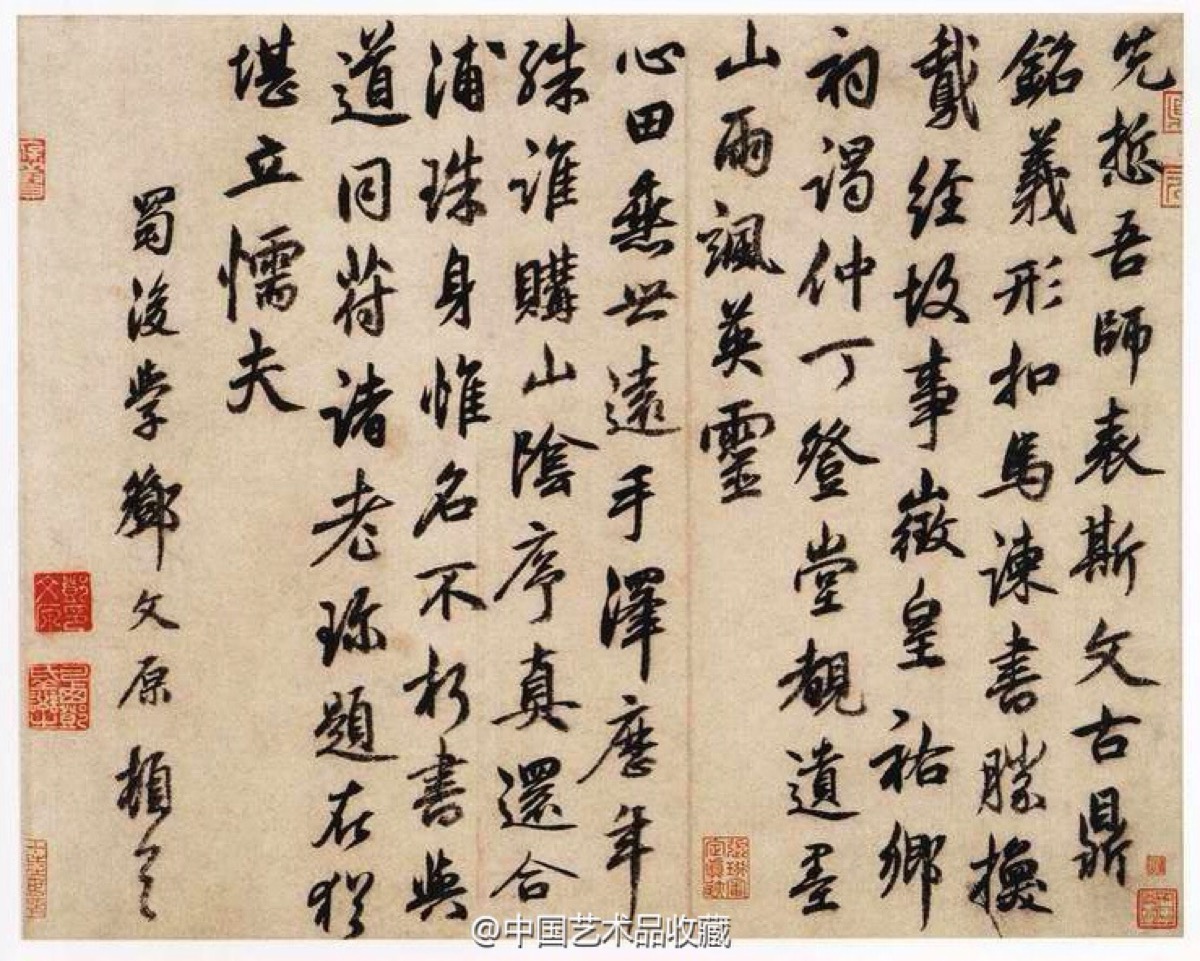 先悊吾師表斯文古鼎
銘義形扣馬諫書勝換
鵞經故事徵皇祐鄉
祠謁仲丁登堂覩遺墨
山雨颯英靈
心田垂世遠手澤歷年
殊誰購山陰序真還合
浦珠身惟名不朽書與
道同符諸老珎題在猶
堪立懦夫
蜀後學鄧文原頓首
@中国艺术品收藏